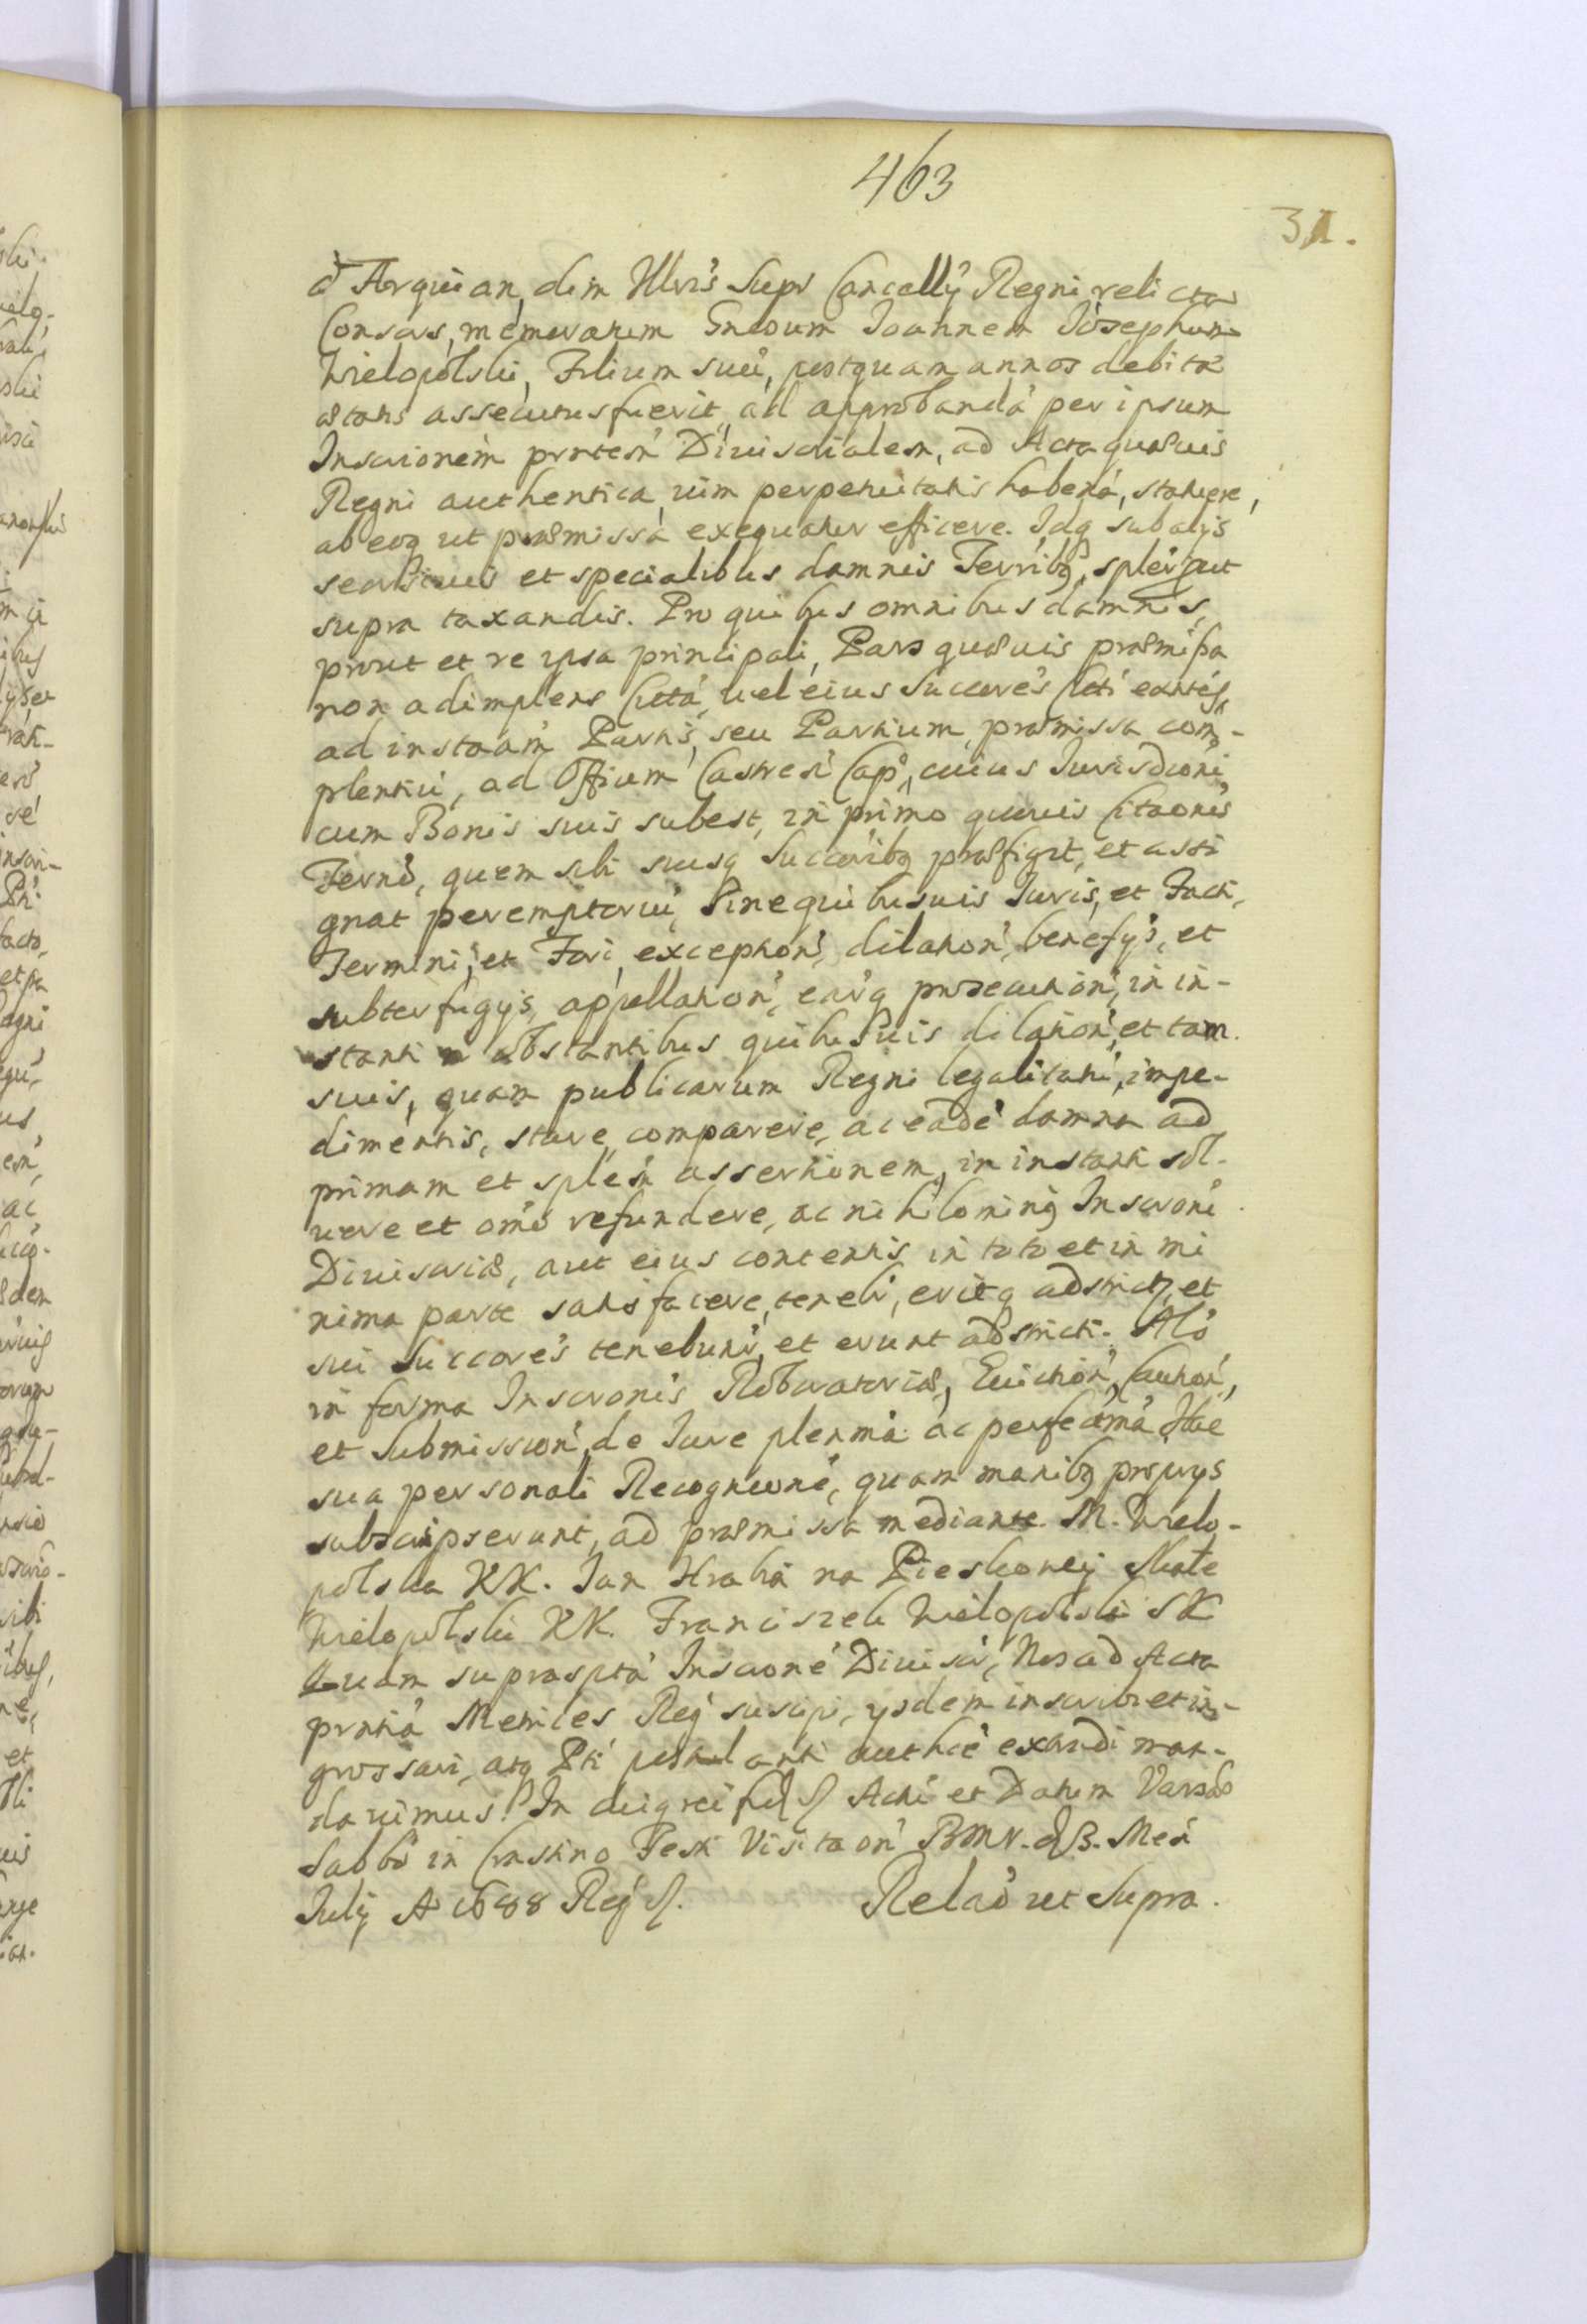 463
31.
d'Arquian, olim Illris Supr Cancellÿ Regni relicta
Consors, memoratum Gnosum Joannem Josephum
Wielopolski, Filium suũ, postquam annos debitæ
ætatis assecutus fuerit, ad approbandã per ipsum
Inscrionem prntem Diuisorialem, ad Acta quæuis
Regni authentica, uim perpetuitatis habentã, statuere,
ab eoq ut præmissa exequatur efficere. Idq sub alÿs
successiuis et specialibus damnis Terribq, spler, ut
supra taxandis. Pro quibus omnibus damnis,
prout et re ipsa principali, Pars quæuis præmissa
non adimplens Citta, uel eius Succores Citi extites,
ad instaam Partis, seu Partium, præmissa com-
plentiũ, ad Offium Castren Cap, cuius Jurisdioni
cum Bonis suis subest, in primo quouis Citaonis
Termo, quem sibi suisq Succoribq præfigit, et assi
gnat peremptoriũ, Sine quibusuis Juris, et Facti,
Termini, et Fori, exception, dilation, benefÿs, et
subterfugÿs, appellation, earq prosecution, in in-
stanti obstantibus quibusuis dilation, et tam
suis, quam publicarum Regni legalitati, impe-
dimentis, stare, comparere, ac eade damna ad
primam et splem assertionem, in instanti sol-
uere et omo refundere, ac nihilominq Inscroni
Diuisoriæ, aut eius contentis in toto et in mi
nima parte satisfacere, tenebr, eritq adstricta, et
sui Succores tenebunr, et erunt adstricti. Alo
in forma Inscronis Roboratoriæ, Euiction, Caution,
et Submission, de Jure plenma ac perfectma. Hac
sua personali Recognione, quam manibq proprÿs
subscripserunt, ad præmissa mediante. M. Wielo-
polska KK. Jan Hrabia na Pieskowej Skale
Wielopolski KK. Franciszek Wielopolski SK
Quam suprasptã Inscrone Diuisor, Nos ad Acta
prntia Metrices Reg suscipi, ÿsdem inscribi et in-
grossari, atq Pti postulanti authce extradi man-
dauimus. In cuiq rei fid Acti et Datum Varsao
Sabbo in Crastino Festi Visitaon BMV. d 3. Men
Julÿ A 1688 Reg
Relao ut Supra.